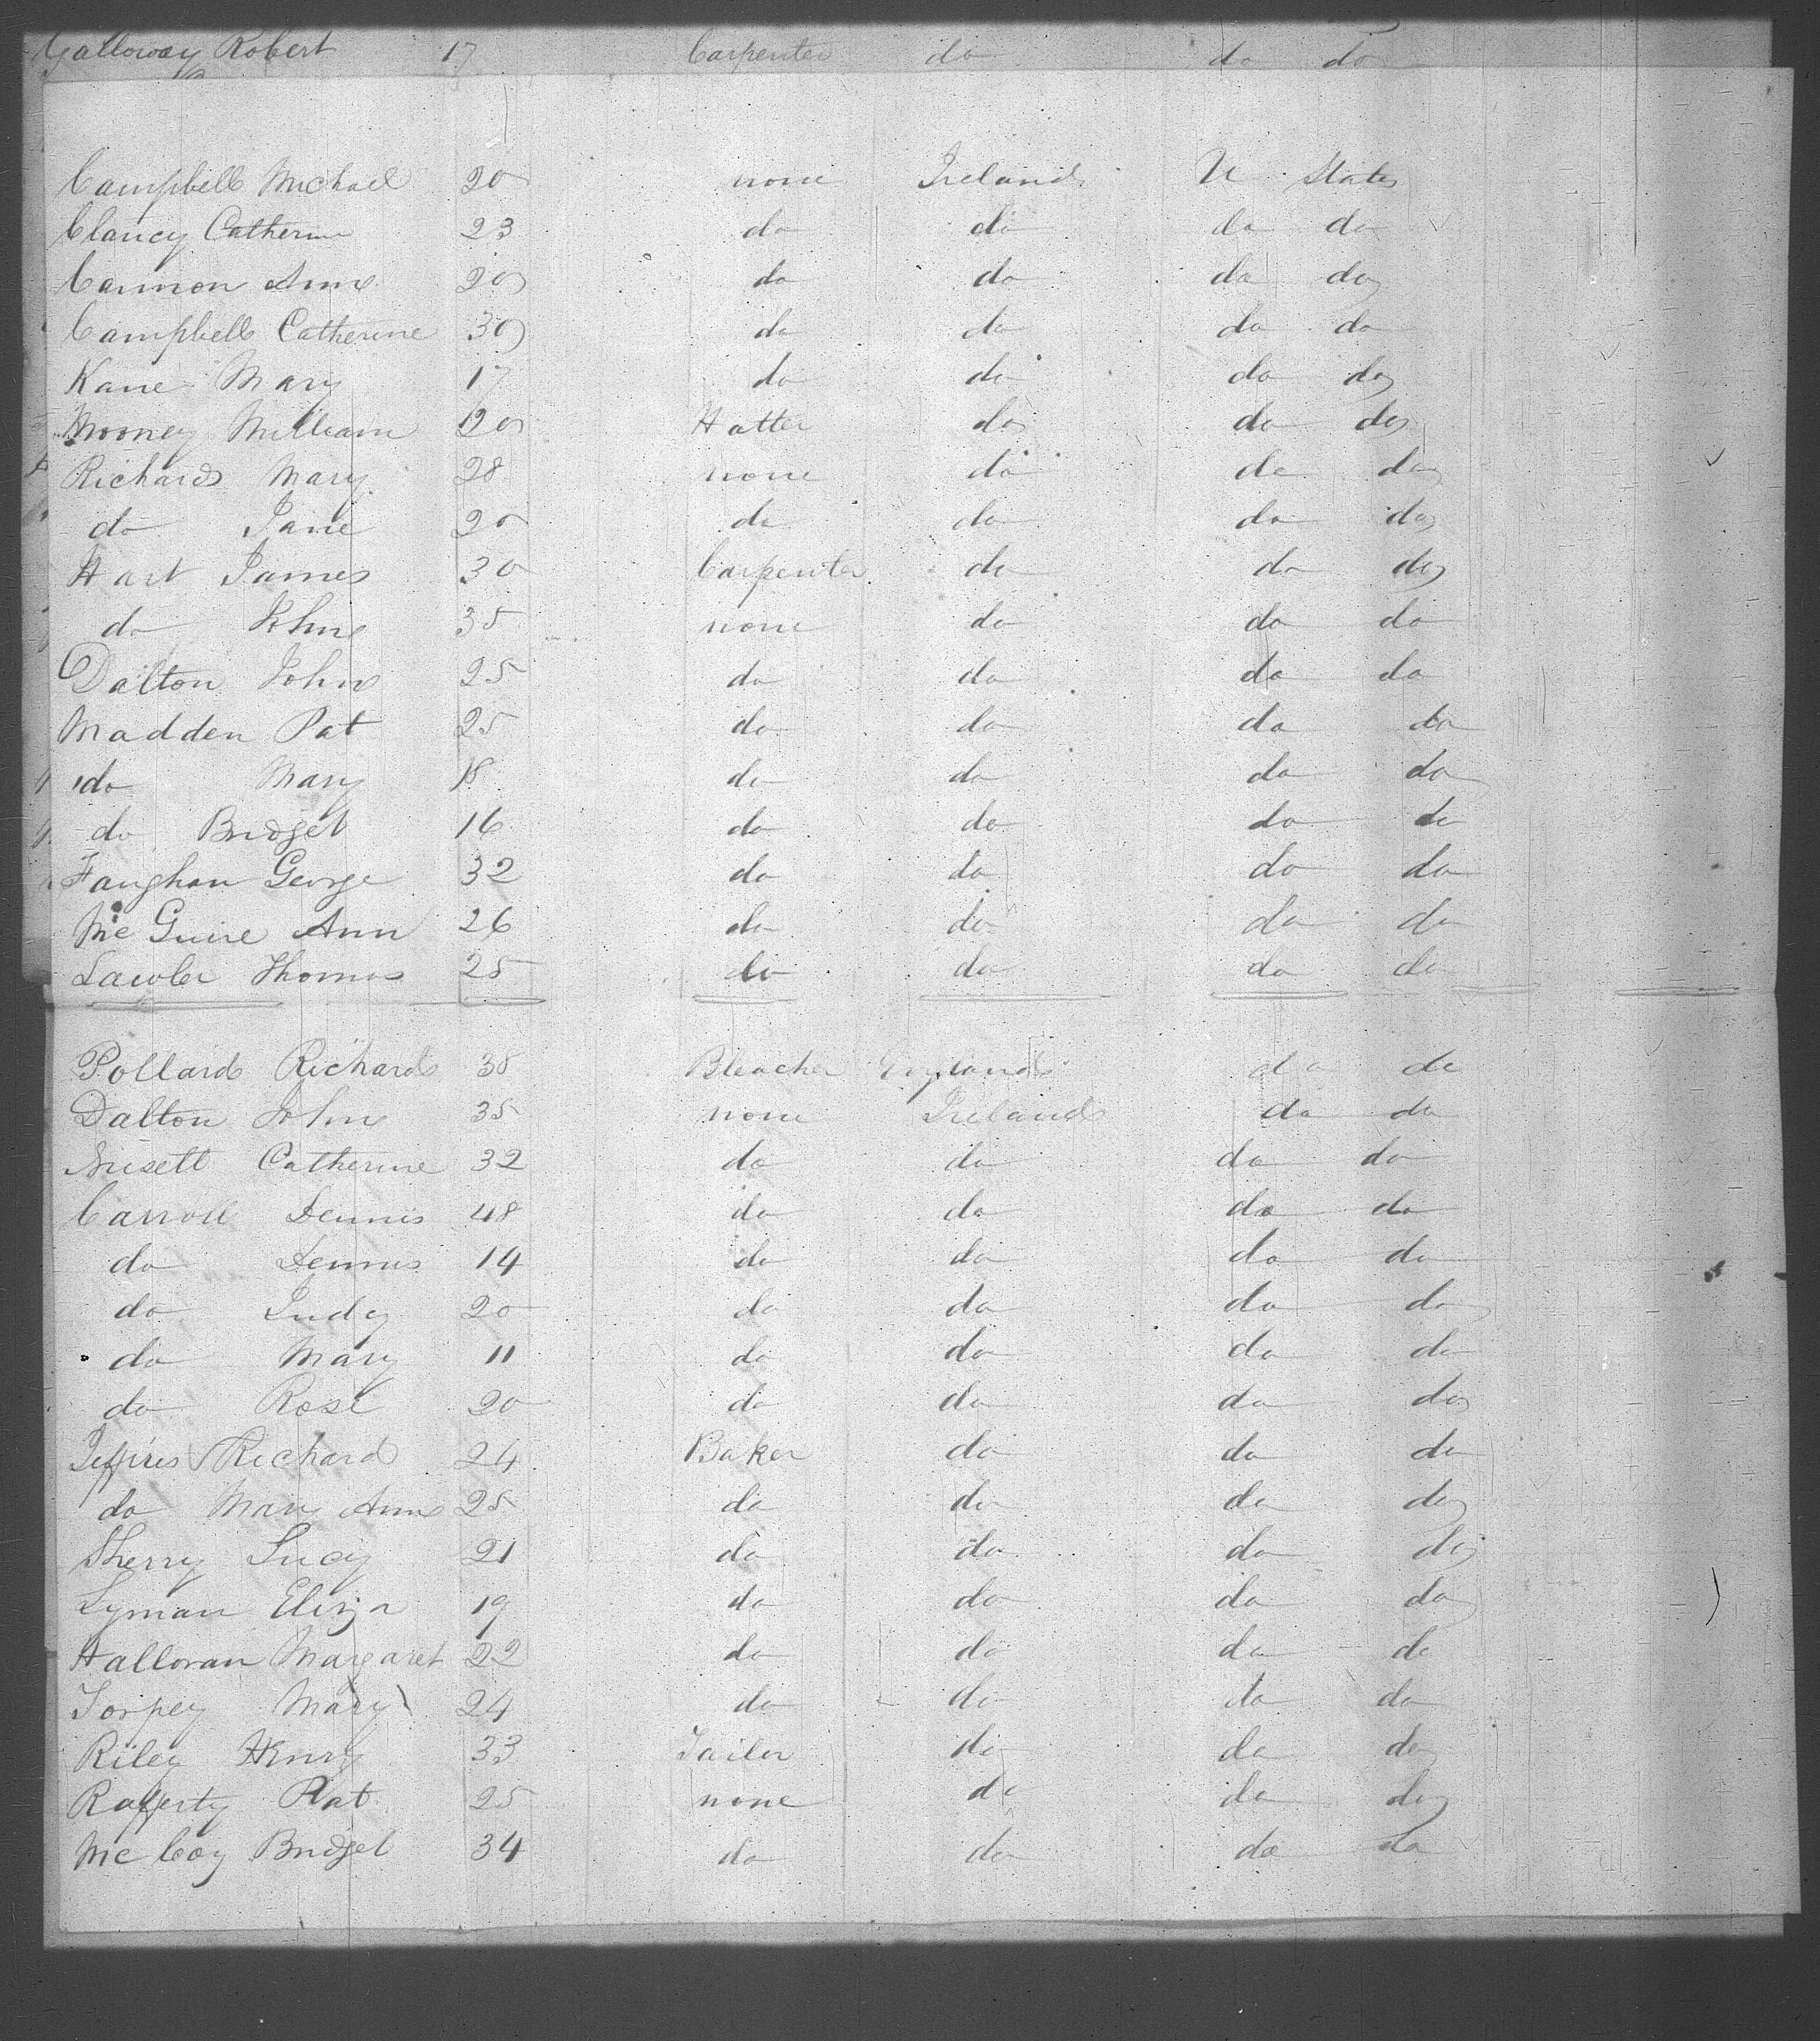 Galloway Robert 17 Carpenter do do do
Campbell Michael 20 none Ireland U States
Clancy Catherine 23 do do do do
Cannon Ann 20 do do do do
Campbell Catherine 30 do do do do
Kane Mary 17 do do do do
Mooney William 20 Hatter do do do
Richards Mary 28 none do do do
do Jane 20 do do do do
Hart James 30 Carpenter do do do
do John 35 none do do do
Dalton John 25 do do do do
Madden Pat 25 do do do do
do Mary 18 do do do do
do Bridget 16 do do do do
Faughan George 32 do do do do
McGuire Ann 26 do do do do
Lawler Thomas 25 do do do do
Pollard Richard 38 Bleacher England do do
Dalton John 35 none Ireland do do
Catherine 32 do do do do
Carroll Dennis 48 do do do do
do Dennis 14 do do do do
do Judy 20 do do do do
do Mary 11 do do do do
do Rose 20 do do do do
Jeffries Richard 24 Baker do do do
do Mary Ann 25 do do do do
Sherry Lucy 21 do do do do
Lyman Eliza 19 do do do do
Halloran Margaret 22 do do do do
Torpey Mary 24 do do do do
Riley Henry 33 Tailor do do do
Rafferty Pat 25 none do do do
McCoy Bridget 34 do do do do